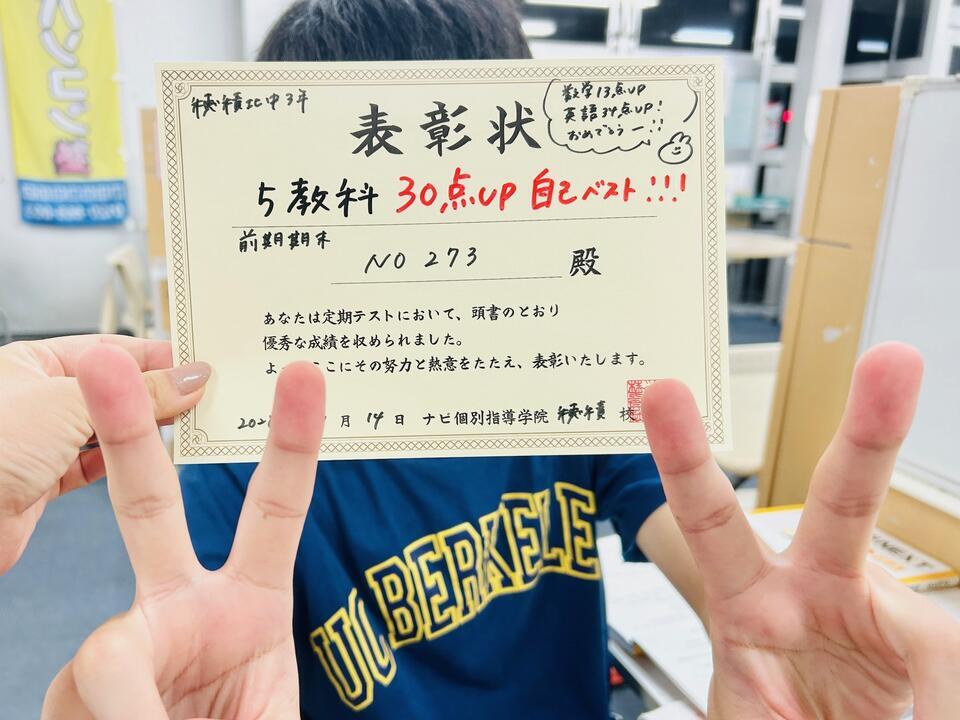 ペンギン塾
穂積北中3年
表彰状
数学13点UP
英語34点UP!
おめでとうー!!
5教科 30点UP 自己ベスト!!!
前期期末
NO 273 殿
あなたは定期テストにおいて、頭書のとおり
優秀な成績を収められました。
ここにその努力と熱意をたたえ、表彰いたします。
月 14 日 ナビ個別指導学院 穂積
UC BERKELE